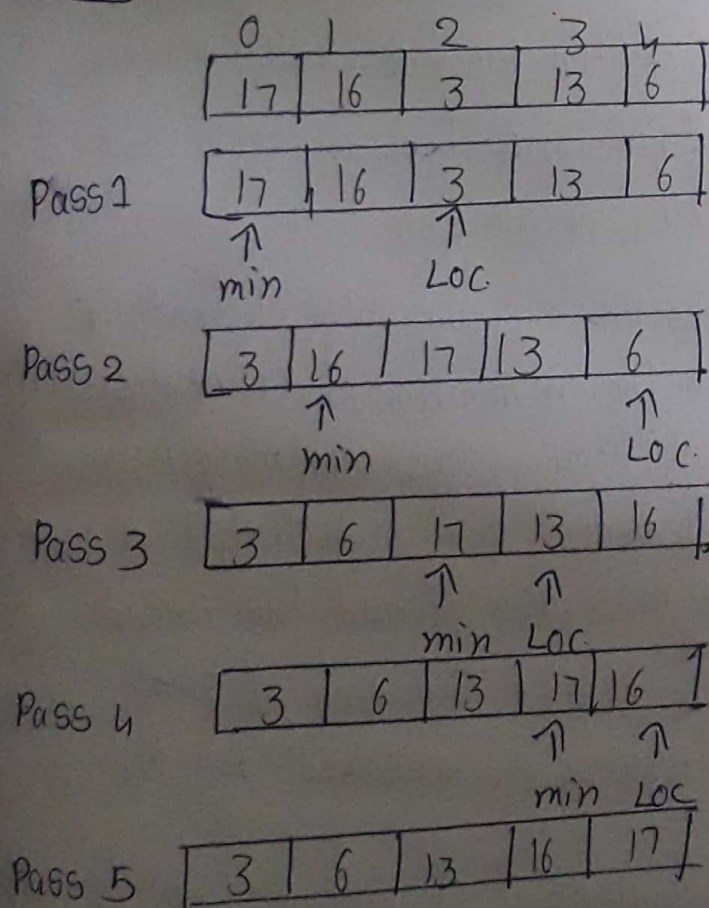 0 1 2 3 4
17 16 3 13 6
Pass 1 17 16 3 13 6
↑ ↑
min Loc.
Pass 2 3 16 17 13 6
↑ ↑
min Loc.
Pass 3 3 6 17 13 16
↑ ↑
min Loc.
Pass 4 3 6 13 17 16
↑ ↑
min Loc
Pass 5 3 6 13 16 17